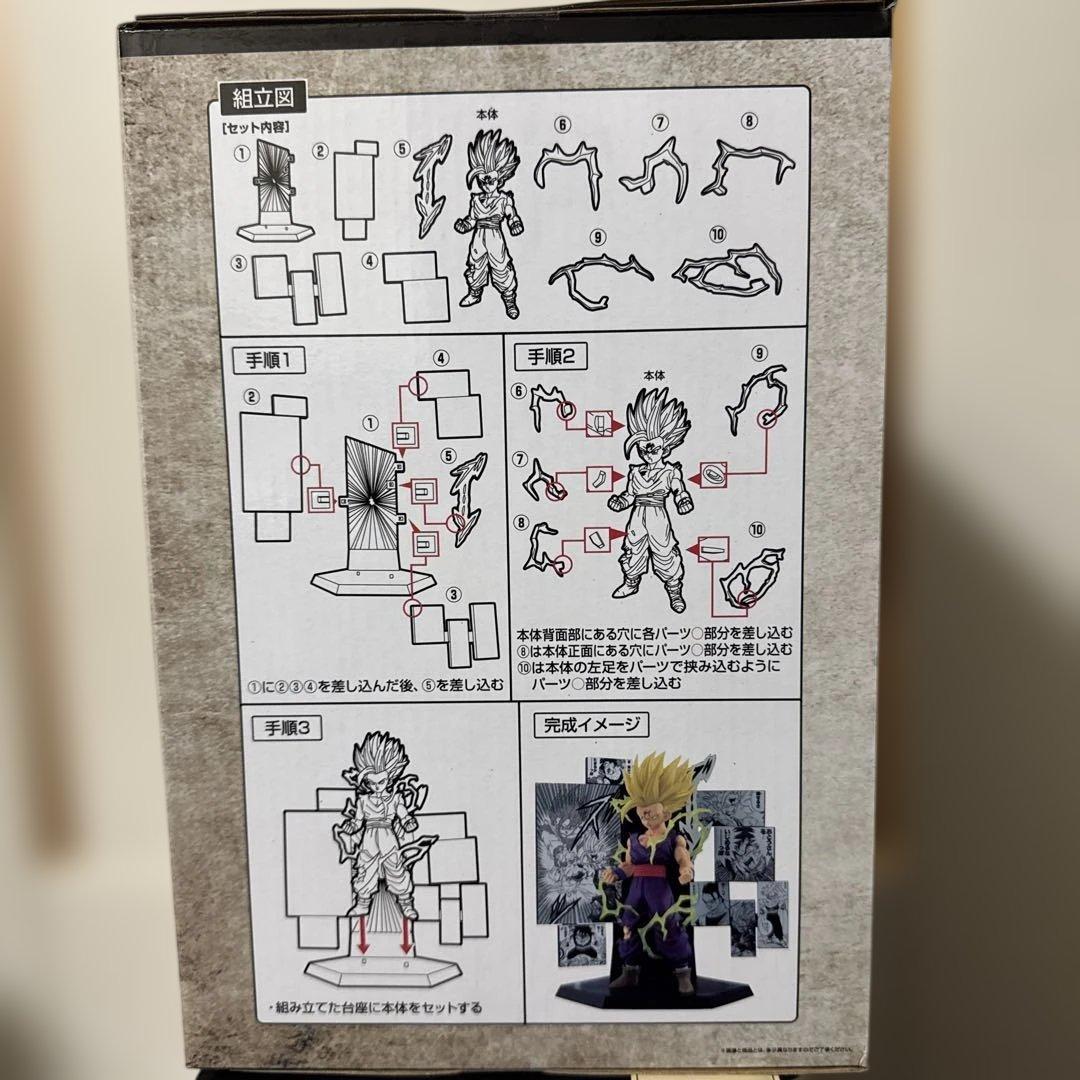 組立図
[セット内容]
① ② ⑤ 本体 ⑥ ⑦ ⑧
③ ④ ⑨ ⑩
手順1
② ① ④
⑤
③
①に②③④を差し込んだ後、⑤を差し込む
手順2
⑥ 本体 ⑨
⑦
⑧ ⑩
本体背面部にある穴に各パーツ○部分を差し込む
⑧は本体正面にある穴にパーツ○部分を差し込む
⑩は本体の左足をパーツで挟み込むように
パーツ○部分を差し込む
手順3
・組み立てた台座に本体をセットする
完成イメージ
※画像と商品とは、多少異なりますのでご了承ください。